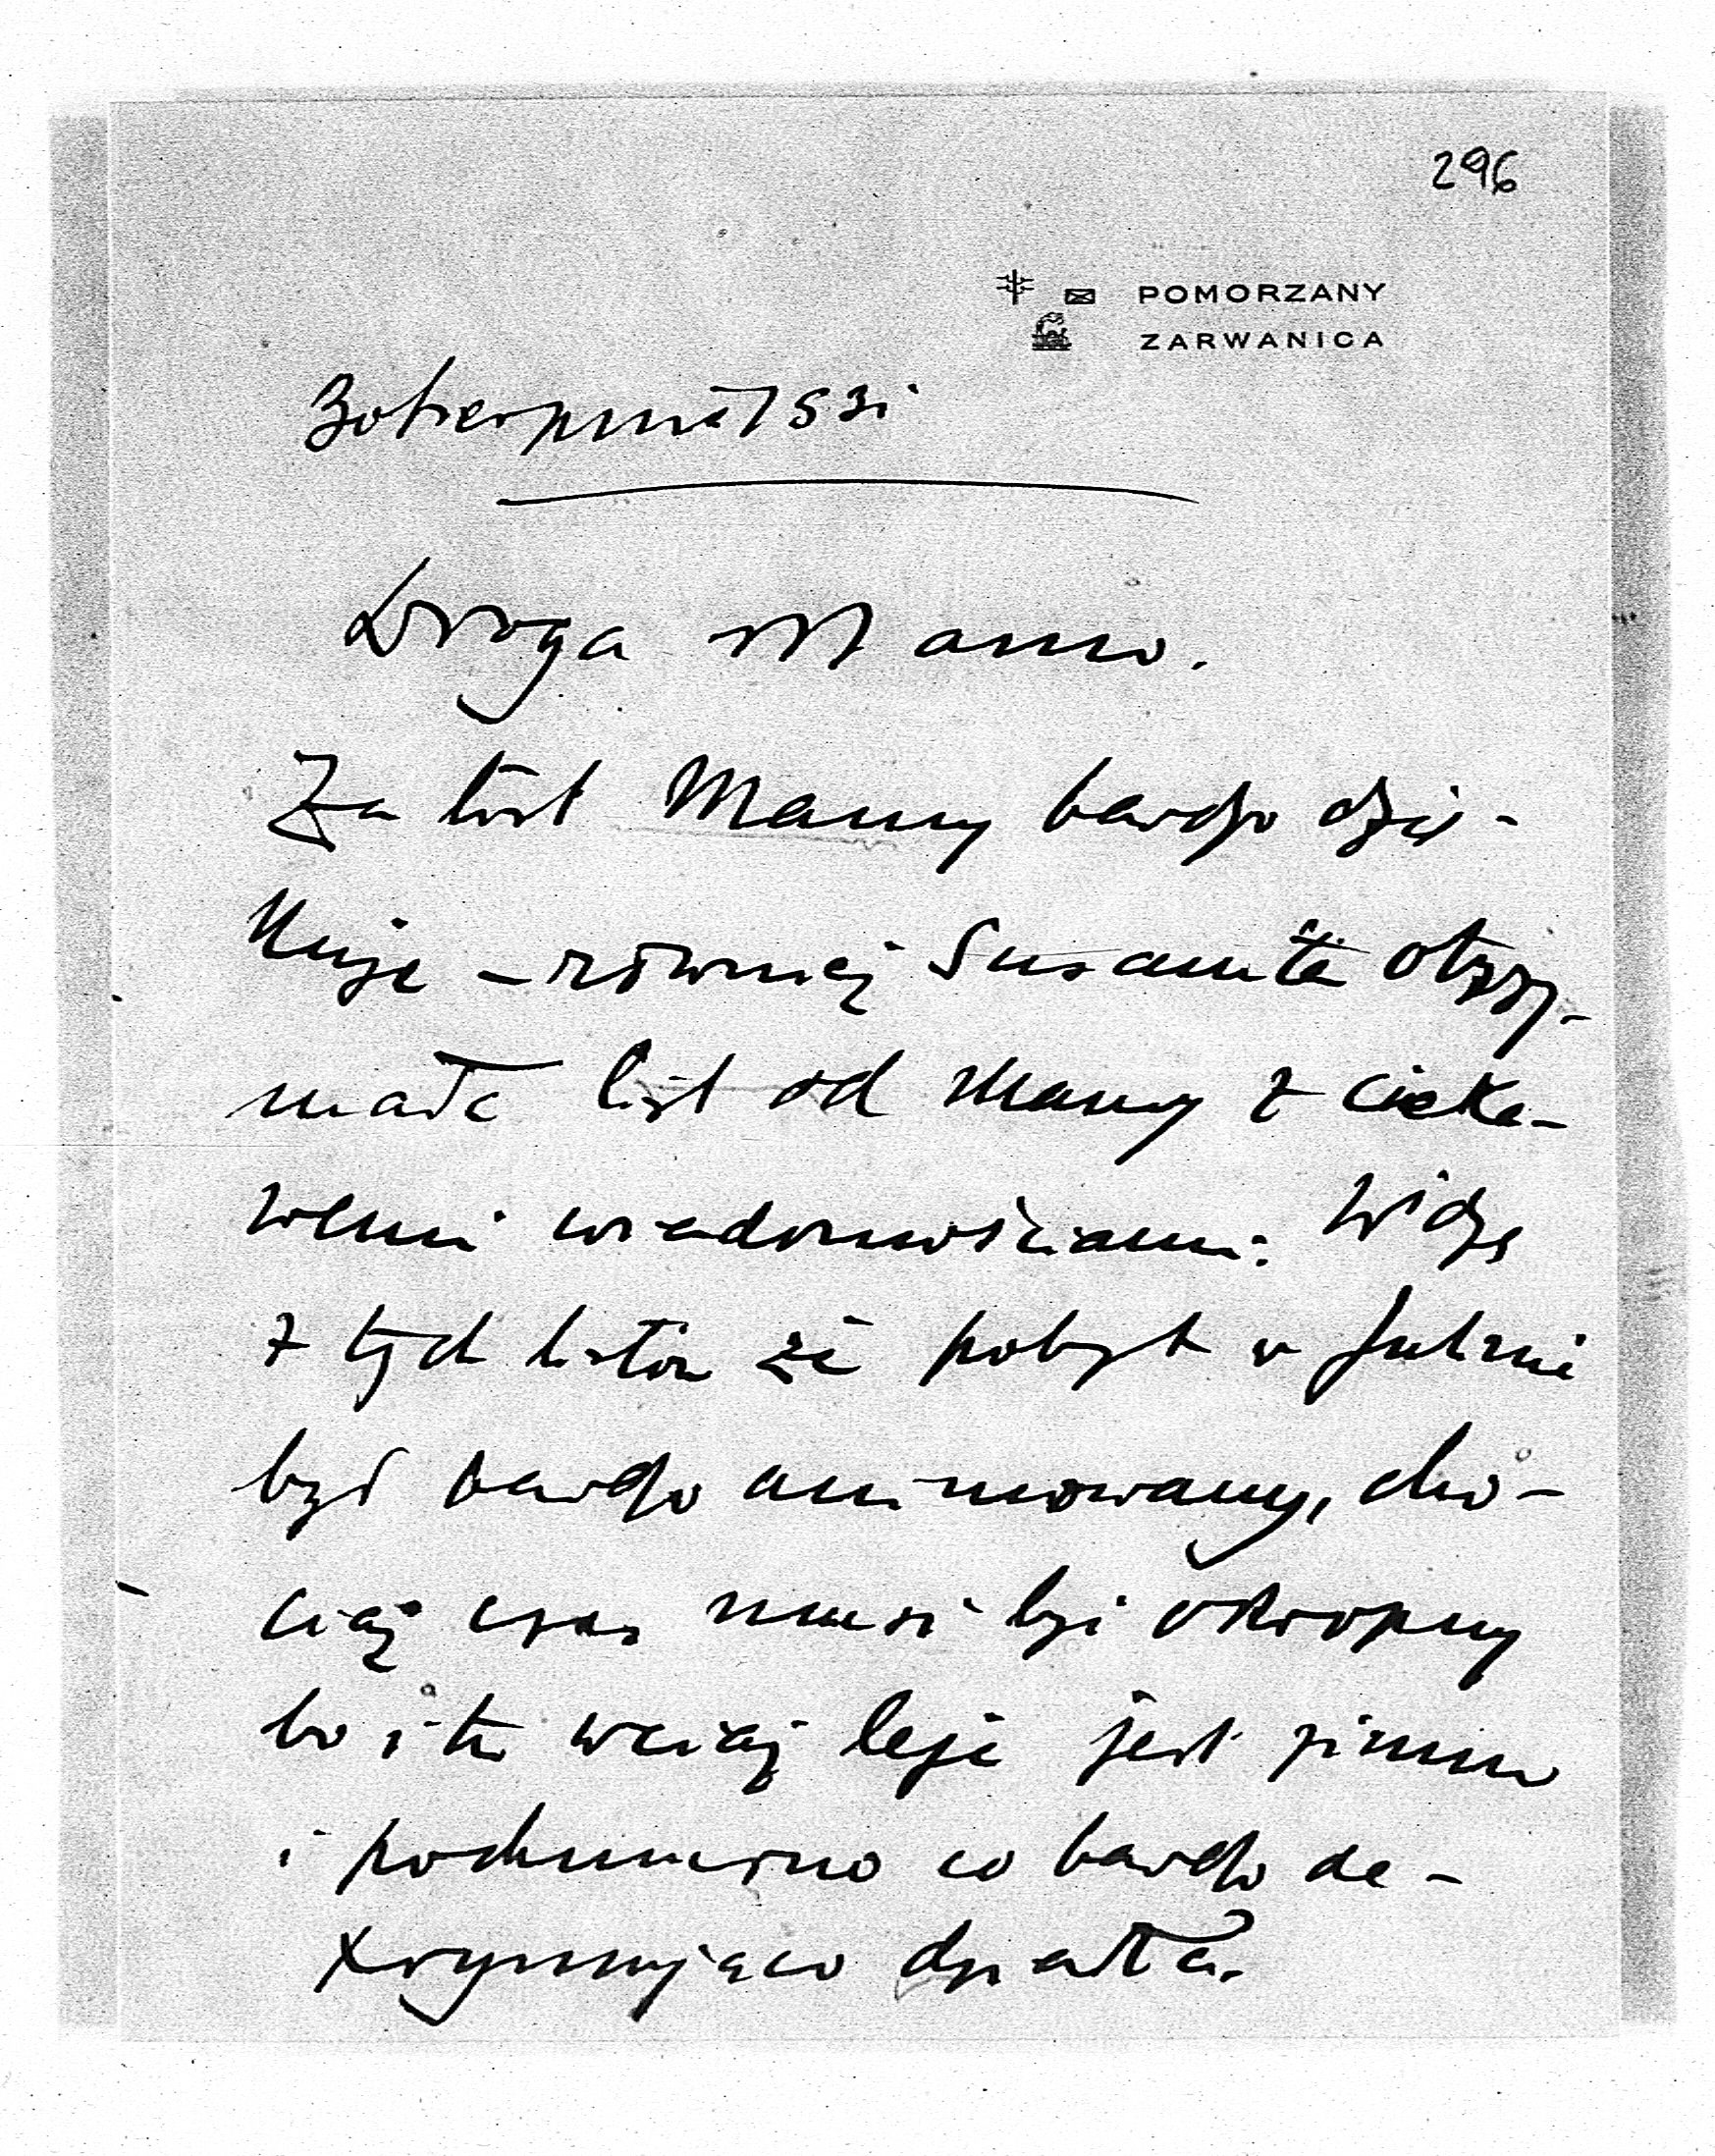 296
POMORZANY
ZARWANICA
30 sierpnia 1931
Droga Mamo.
Za list Mamy bardzo dzię-
kuję – również Susanita otrzy-
mała list od Mamy z cieka-
wemi wiadomościami. Widzę
z tych listów że pobyt w
był bardzo animowany, cho-
ciąż czas musi być okropny
bo i tu wciąż leje jest zimno
i pochmurno co bardzo de-
prymująco działa.